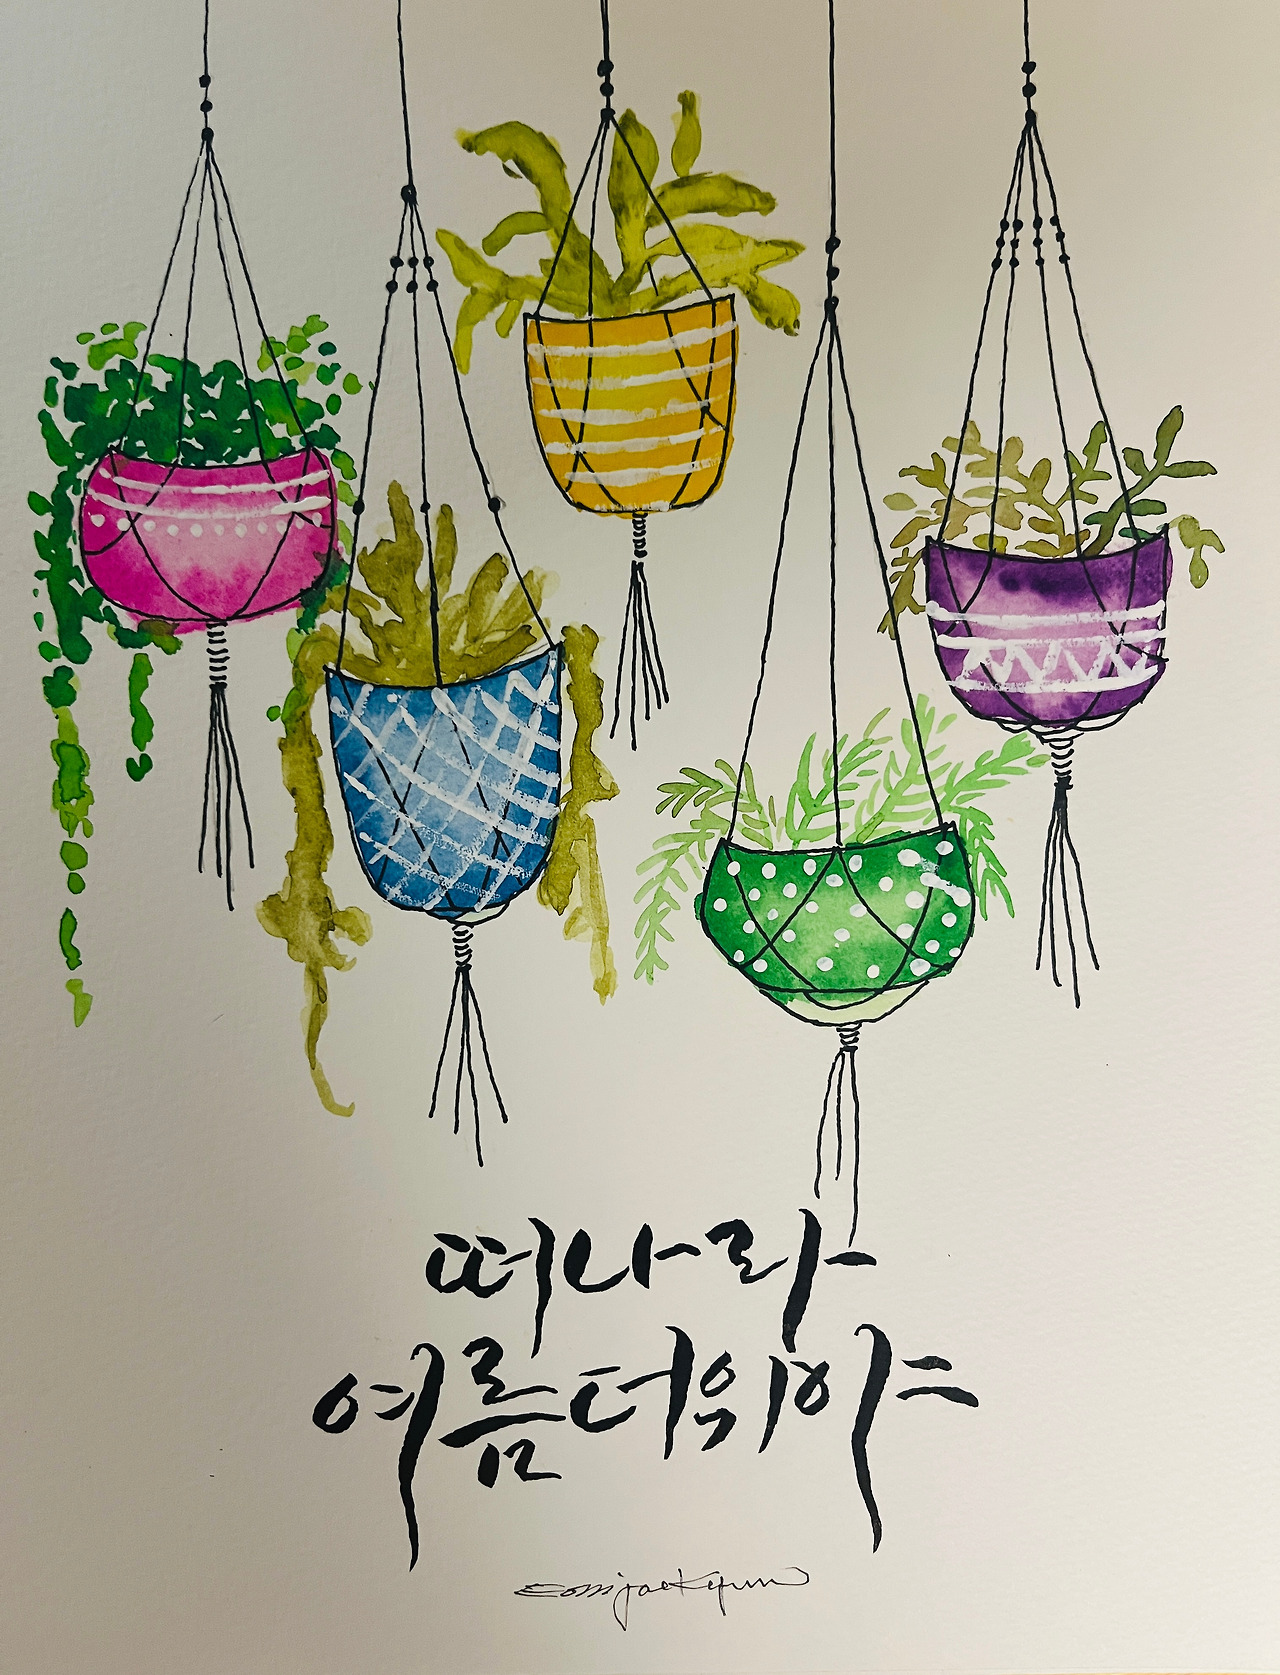 떠나라
여름더위야
Eom jaekyun